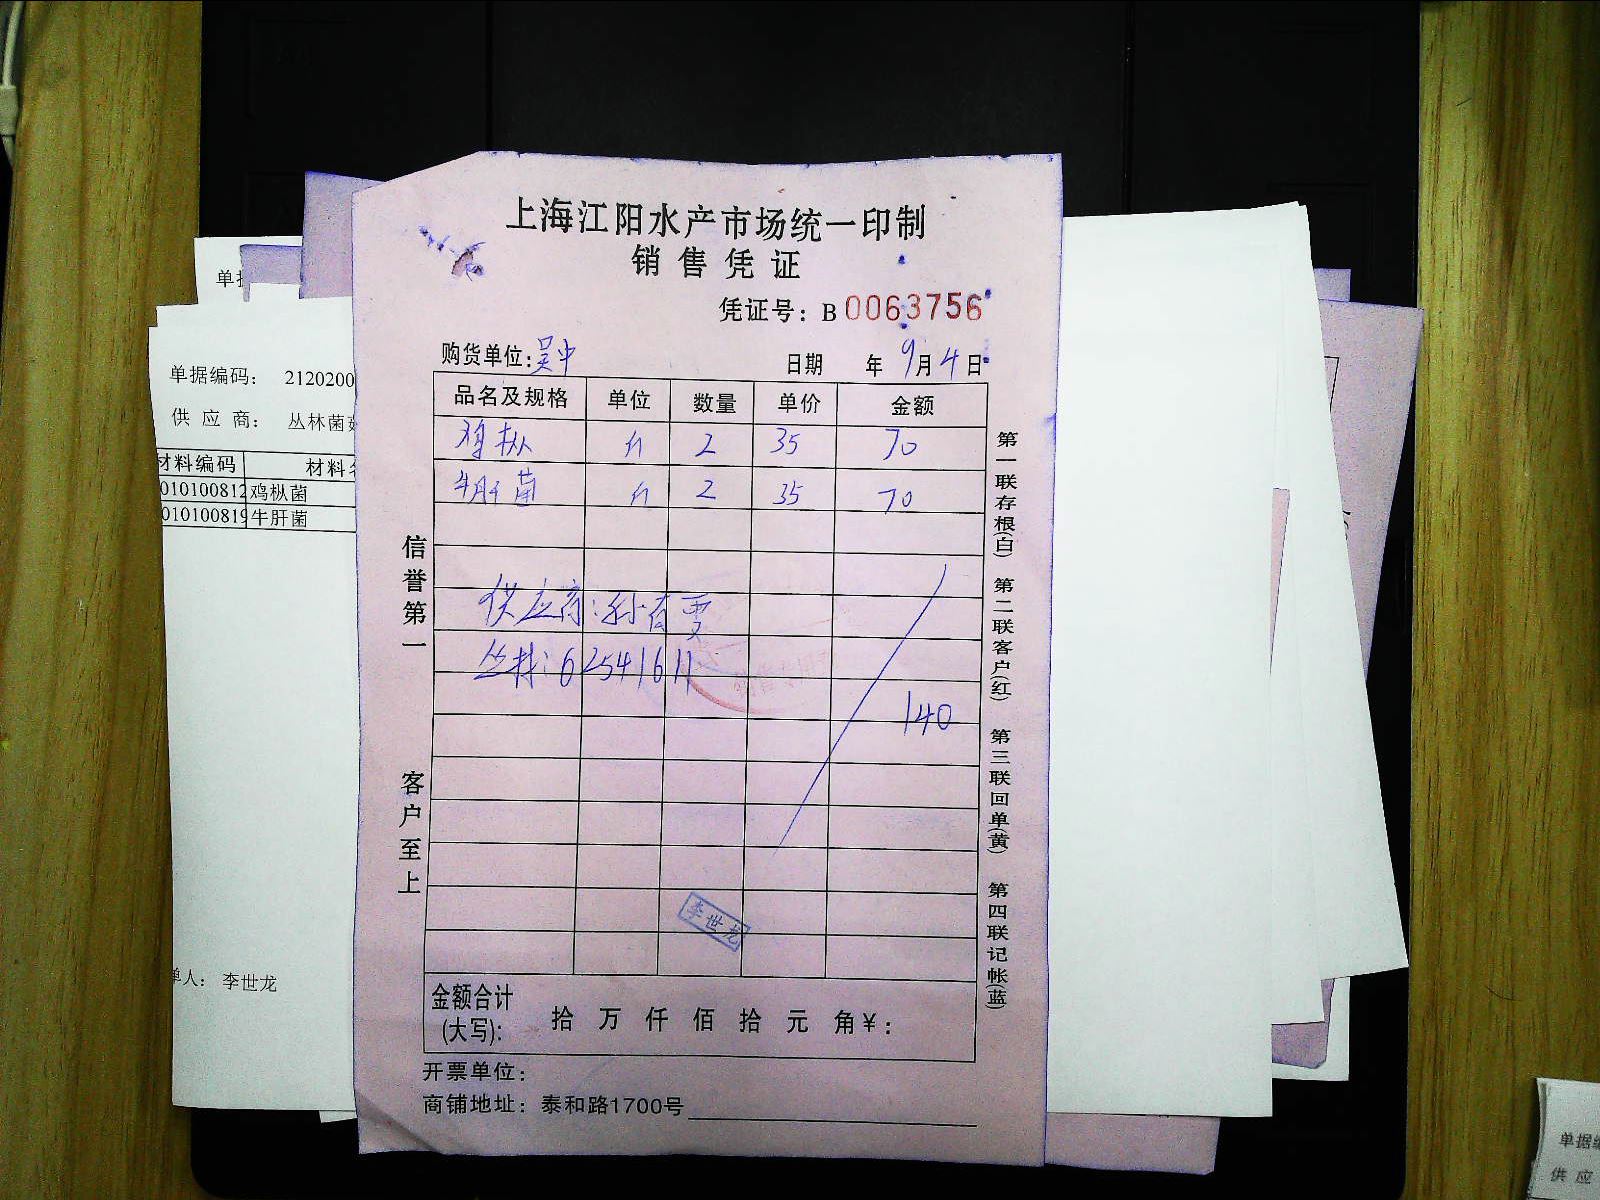 上海江阳水产市场统一印制
销售凭证
凭证号：B 0063756
购货单位：吴中 日期 年 9月4日
品名及规格 单位 数量 单价 金额
鸡枞 斤 2 35 70
牛肝菌 斤 2 35 70
供应商：孙春雯
丛林：62541611
140
李世龙
金额合计
(大写)： 拾 万 仟 佰 拾 元 角 ¥：
开票单位：
商铺地址：泰和路1700号
信誉第一
客户至上
第一联存根(白) 第二联客户(红) 第三联回单(黄) 第四联记帐(蓝)
单据编码： 2120200
供应商： 丛林菌
材料编码 材料
010100812 鸡枞菌
010100819 牛肝菌
单人： 李世龙
单据
供 应